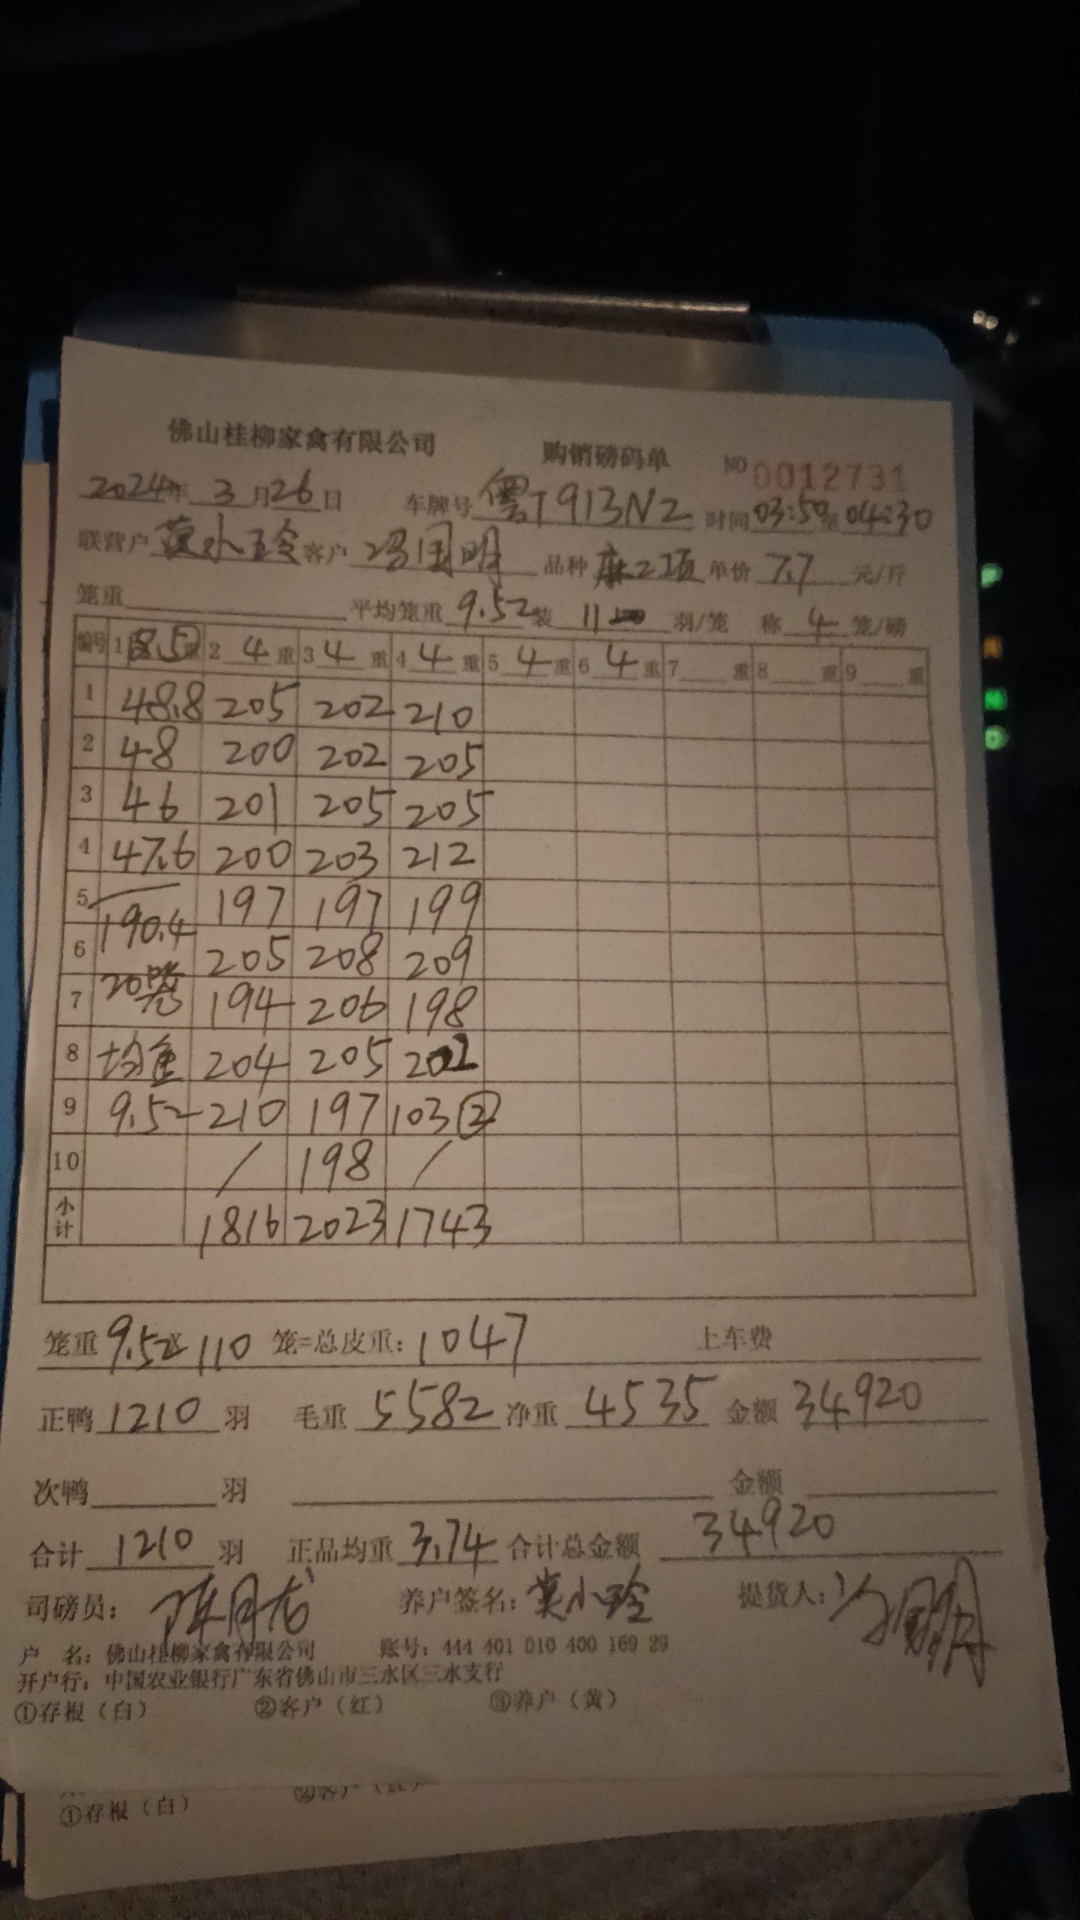 佛山桂柳家禽有限公司 购销磅码单 NO 0012731
2024年 3月26日 车牌号 粤T913N2 时间 03:50至04:30
联营户 莫小玲 客户 冯国明 品种 麻二项 单价 7.7 元/斤
笼重 平均笼重 9.52 装 11 羽/笼 称 4 笼/磅
编号 1 5重 2 4 重 3 4 重 4 4 重 5 4 重 6 4 重 7 重 8 重 9 重
1 48.8 205 202 210
2 48 200 202 205
3 46 201 205 205
4 47.6 200 203 212
5 197 197 199
190.4
6 205 208 209
7 20笼 194 206 198
8 均重 204 205 202
9 9.52 210 197 103②
10 / 198 /
小计 1816 2023 1743
笼重 9.52x 110 笼=总皮重: 1047 上车费
正鸭 1210 羽 毛重 5582 净重 4535 金额 34920
次鸭 羽 金额
合计 1210 羽 正品均重 3.74 合计总金额 34920
司磅员: 陈月龙 养户签名: 莫小玲 提货人: 冯国明
户 名: 佛山桂柳家禽有限公司 账号: 444 401 010 400 169 29
开户行: 中国农业银行广东省佛山市三水区三水支行
①存根（白） ②客户（红） ③养户（黄）
①存根（白） ②客户（红）